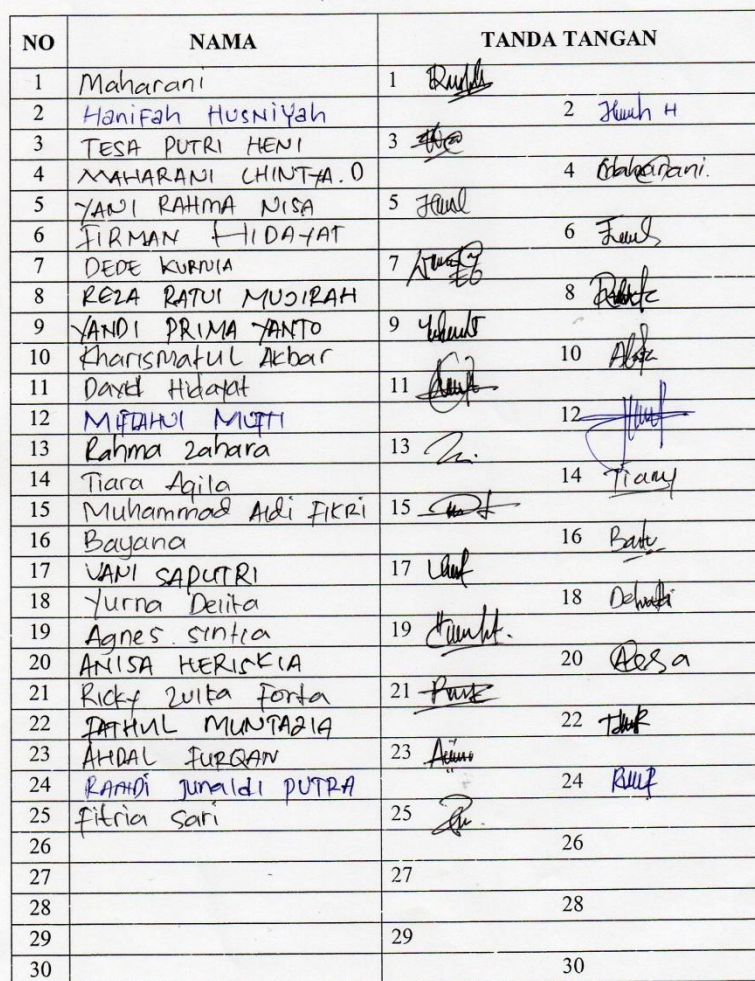 NO NAMA TANDA TANGAN
1 Maharani 1
2 Hanifah Husniyah 2
3 TESA PUTRI HENI 3
4 MAHARANI CHINTYA.O 4 Maharani.
5 YANI RAHMA NISA 5
6 FIRMAN HIDAYAT 6
7 DEDE KURNIA 7
8 REZA RATUI MUJIRAH 8
9 YANDI PRIMA YANTO 9
10 Kharismatul Akbar 10
11 David Hidayat 11
12 MIFTAHUL MUFTI 12
13 Rahma Zahara 13
14 Tiara Aqila 14
15 Muhammad Aldi FIKRi 15
16 Bayana 16
17 VANI SAPUTRI 17
18 Yurna Delita 18
19 Agnes sintia 19
20 ANISA HERISKIA 20
21 Ricky Zulka Forta 21
22 FATHUL MUNTAZIA 22
23 AHDAL FURQAN 23
24 RAHDi Junaldi PUTRA 24
25 Fitria Sari 25
26 26
27 27
28 28
29 29
30 30